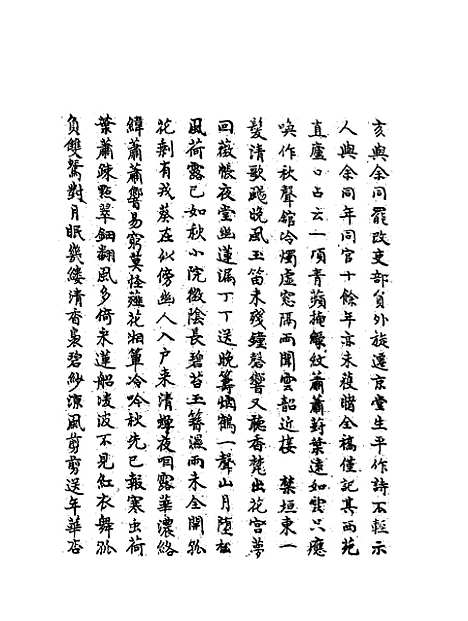 亥與余同罷改吏部員外旋遷京堂生平作詩不輕示
人與余同年同官十餘年亦未獲睹全稿僅記其西苑
直廬口占云一頃青蘋掩縠紋蕭蕭葑葉遠如雲只應
喚作秋聲館冷燭虛窓隔雨聞雲韶近接　禁垣東一
髮清歌颺晚風玉笛未殘鐘磬響又聽香梵出花宮夢
回薇帳夜堂幽蓮漏丁丁送晚籌烟鶴一聲山月墮松
風荷露已如秋小院微陰長碧苔玉簪濕雨未全開孤
花剩有戎葵在似傍幽人入户來清蟬夜咽露華濃絡
緯蕭蕭響易窮莫怪薤花湘簟冷吟秋先已報寒虫荷
葉蕭疎㸃翠鈿翻風多倚采蓮船凌波不見紅衣舞孤
負雙鴛對月眠幾縷清香裊碧紗涼風剪剪送年華杏